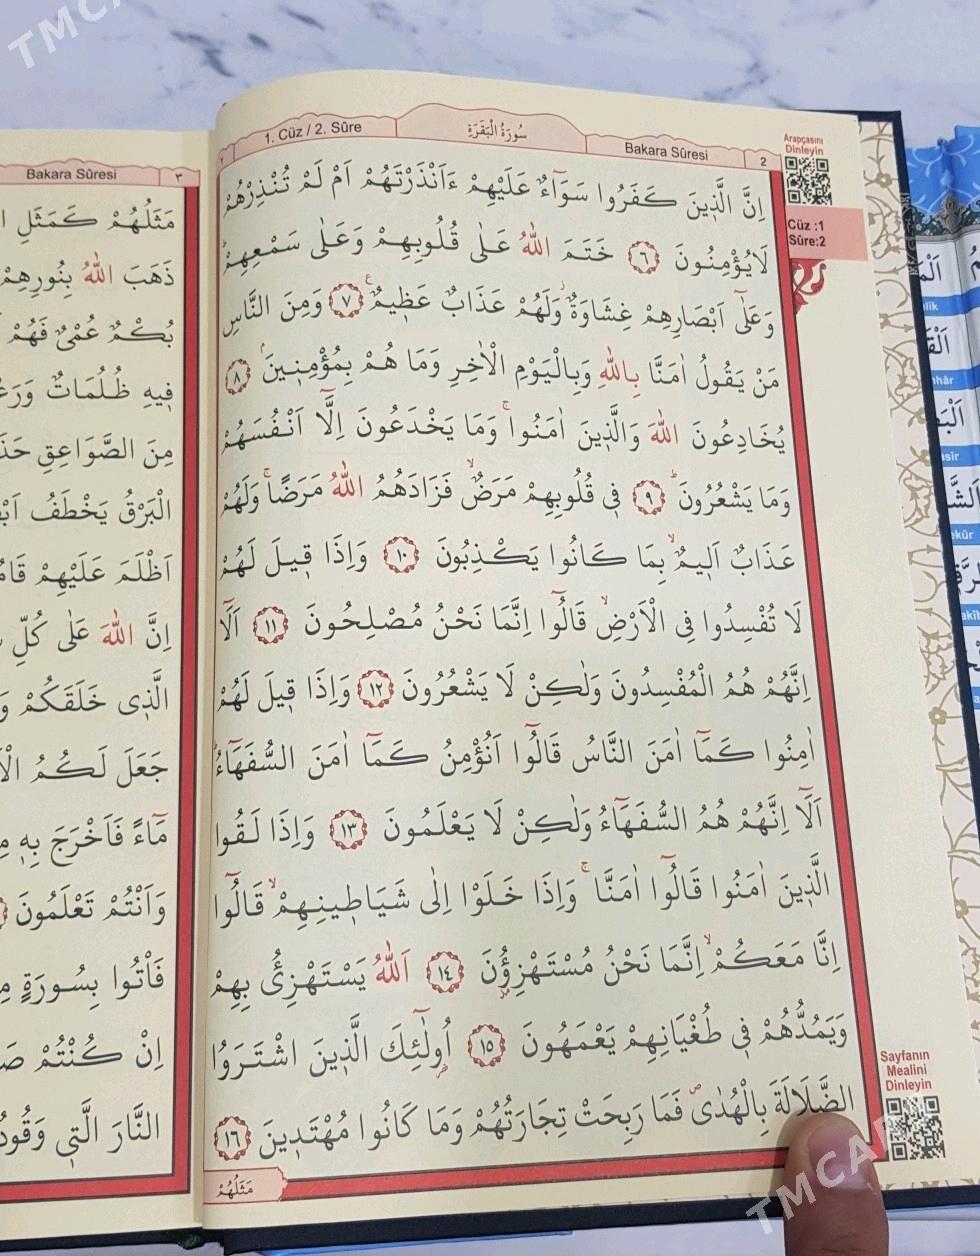 TMCA
1. Cüz / 2. Sûre
سُورَةُ الْبَقَرَةِ
Bakara Sûresi
2
٢
Arapçasını
Dinleyin
Cüz :1
Sûre:2
اِنَّ الَّذ۪ينَ كَفَرُوا سَوَٓاءٌ عَلَيْهِمْ ءَاَنْذَرْتَهُمْ اَمْ لَمْ تُنْذِرْهُمْ
لَايُؤْمِنُونَ ﴿٦﴾ خَتَمَ اللّٰهُ عَلٰى قُلُوبِهِمْ وَعَلٰى سَمْعِهِمْۜ
وَعَلٰٓى اَبْصَارِهِمْ غِشَاوَةٌۘ وَلَهُمْ عَذَابٌ عَظ۪يمٌ۟ ﴿٧﴾ وَمِنَ النَّاسِ
مَنْ يَقُولُ اٰمَنَّا بِاللّٰهِ وَبِالْيَوْمِ الْاٰخِرِ وَمَا هُمْ بِمُؤْمِن۪ينَۢ ﴿٨﴾
يُخَادِعُونَ اللّٰهَ وَالَّذ۪ينَ اٰمَنُواۚ وَمَا يَخْدَعُونَ اِلَّٓا اَنْفُسَهُمْ
وَمَا يَشْعُرُونَۜ ﴿٩﴾ ف۪ي قُلُوبِهِمْ مَرَضٌۙ فَزَادَهُمُ اللّٰهُ مَرَضًاۚ وَلَهُمْ
عَذَابٌ اَل۪يمٌۙ بِمَا كَانُوا يَكْذِبُونَ ﴿١٠﴾ وَاِذَا ق۪يلَ لَهُمْ
لَا تُفْسِدُوا فِي الْاَرْضِۙ قَالُٓوا اِنَّمَا نَحْنُ مُصْلِحُونَ ﴿١١﴾ اَلَٓا
اِنَّهُمْ هُمُ الْمُفْسِدُونَ وَلٰكِنْ لَا يَشْعُرُونَ ﴿١٢﴾ وَاِذَا ق۪يلَ لَهُمْ
اٰمِنُوا كَمَٓا اٰمَنَ النَّاسُ قَالُٓوا اَنُؤْمِنُ كَمَٓا اٰمَنَ السُّفَهَٓاءُۜ
اَلَٓا اِنَّهُمْ هُمُ السُّفَهَٓاءُ وَلٰكِنْ لَا يَعْلَمُونَ ﴿١٣﴾ وَاِذَا لَقُوا
الَّذ۪ينَ اٰمَنُوا قَالُٓوا اٰمَنَّاۚ وَاِذَا خَلَوْا اِلٰى شَيَاط۪ينِهِمْۙ قَالُٓوا
اِنَّا مَعَكُمْۙ اِنَّمَا نَحْنُ مُسْتَهْزِؤُ۫نَ ﴿١٤﴾ اَللّٰهُ يَسْتَهْزِئُ بِهِمْ
وَيَمُدُّهُمْ ف۪ي طُغْيَانِهِمْ يَعْمَهُونَ ﴿١٥﴾ اُو۬لٰٓئِكَ الَّذ۪ينَ اشْتَرَوُا
الضَّلَالَةَ بِالْهُدٰىۖ فَمَا رَبِحَتْ تِجَارَتُهُمْ وَمَا كَانُوا مُهْتَد۪ينَ ﴿١٦﴾
مَثَلُهُمْ
Sayfanın
Mealini
Dinleyin
Bakara Sûresi
٣
مَثَلُهُمْ كَمَثَلِ
ذَهَبَ اللّٰهُ بِنُورِهِمْ
بُكْمٌ عُمْيٌ فَهُمْ
ف۪يهِ ظُلُمَاتٌ
مِنَ الصَّوَاعِقِ
الْبَرْقُ يَخْطَفُ
اَظْلَمَ عَلَيْهِمْ
اِنَّ اللّٰهَ عَلٰى كُلِّ
الَّذ۪ي خَلَقَكُمْ
جَعَلَ لَكُمُ
مَٓاءً فَاَخْرَجَ بِه۪
وَاَنْتُمْ تَعْلَمُونَ
فَأْتُوا بِسُورَةٍ
اِنْ كُنْتُمْ
النَّارَ الَّت۪ي
TMCA